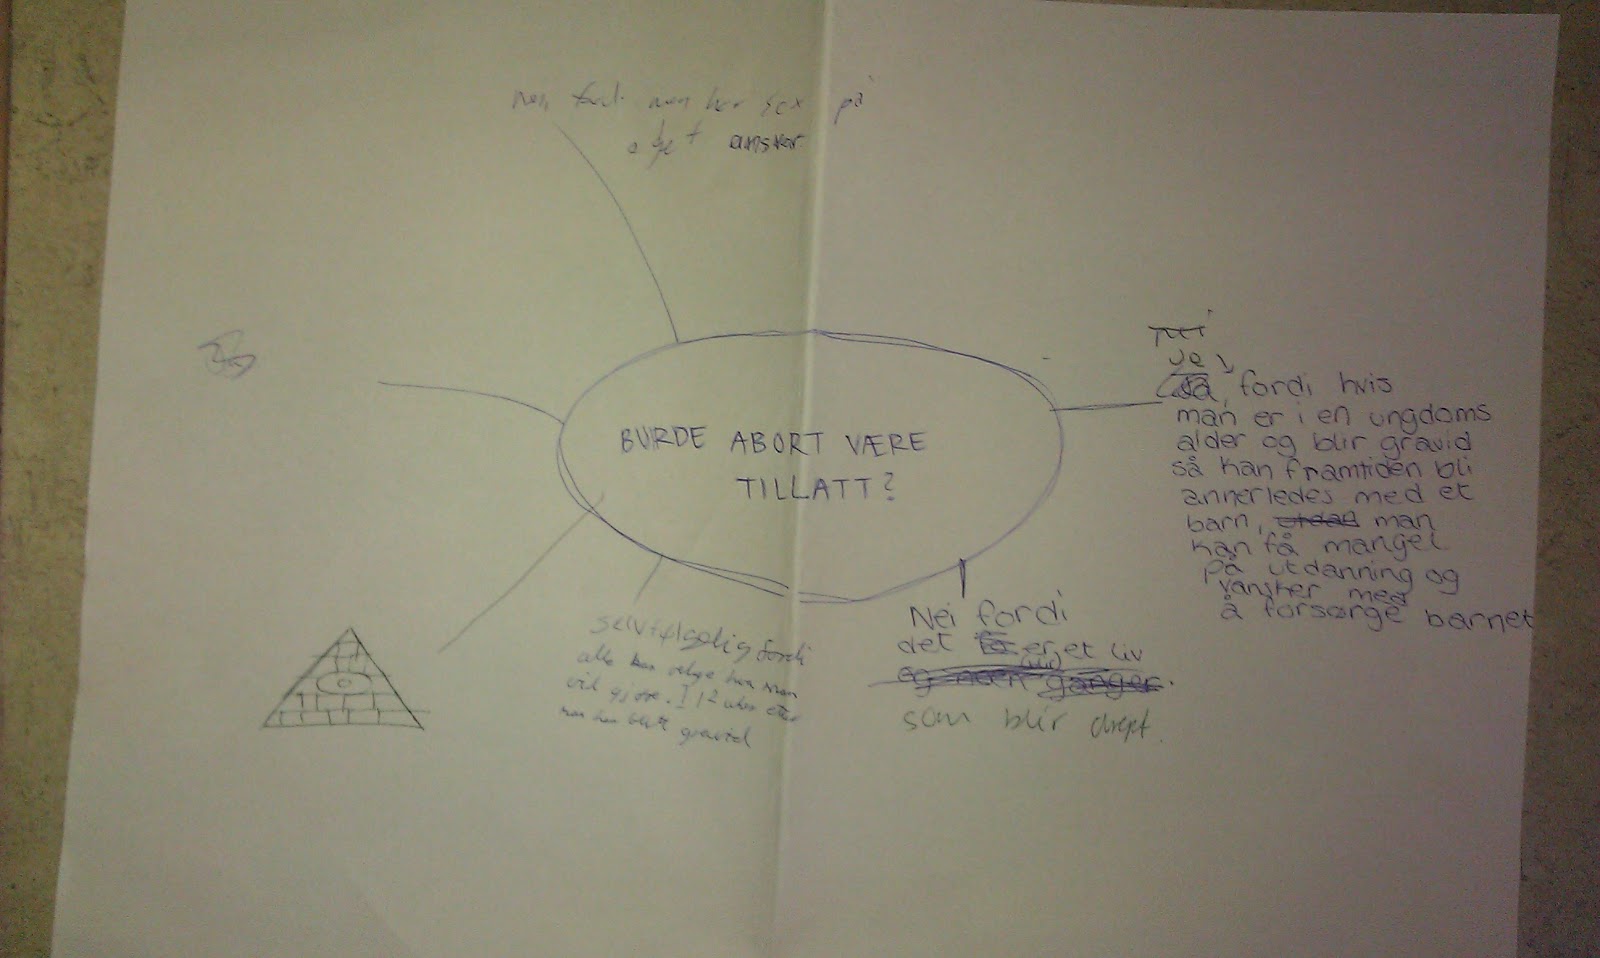 Nei, fordi man har sex på
eget ansvar
BURDE ABORT VÆRE
TILLATT?
Nei
Ja, fordi hvis
man er i en ungdoms
alder og blir gravid
så kan framtiden bli
annerledes med et
barn, man
kan få mangel
på utdanning og
vansker med
å forsørge barnet
Nei fordi
det er et liv
som blir drept.
selvfølgelig fordi
alle kan velge hva man
vil gjøre. I 12 uker etter
man har blitt gravid